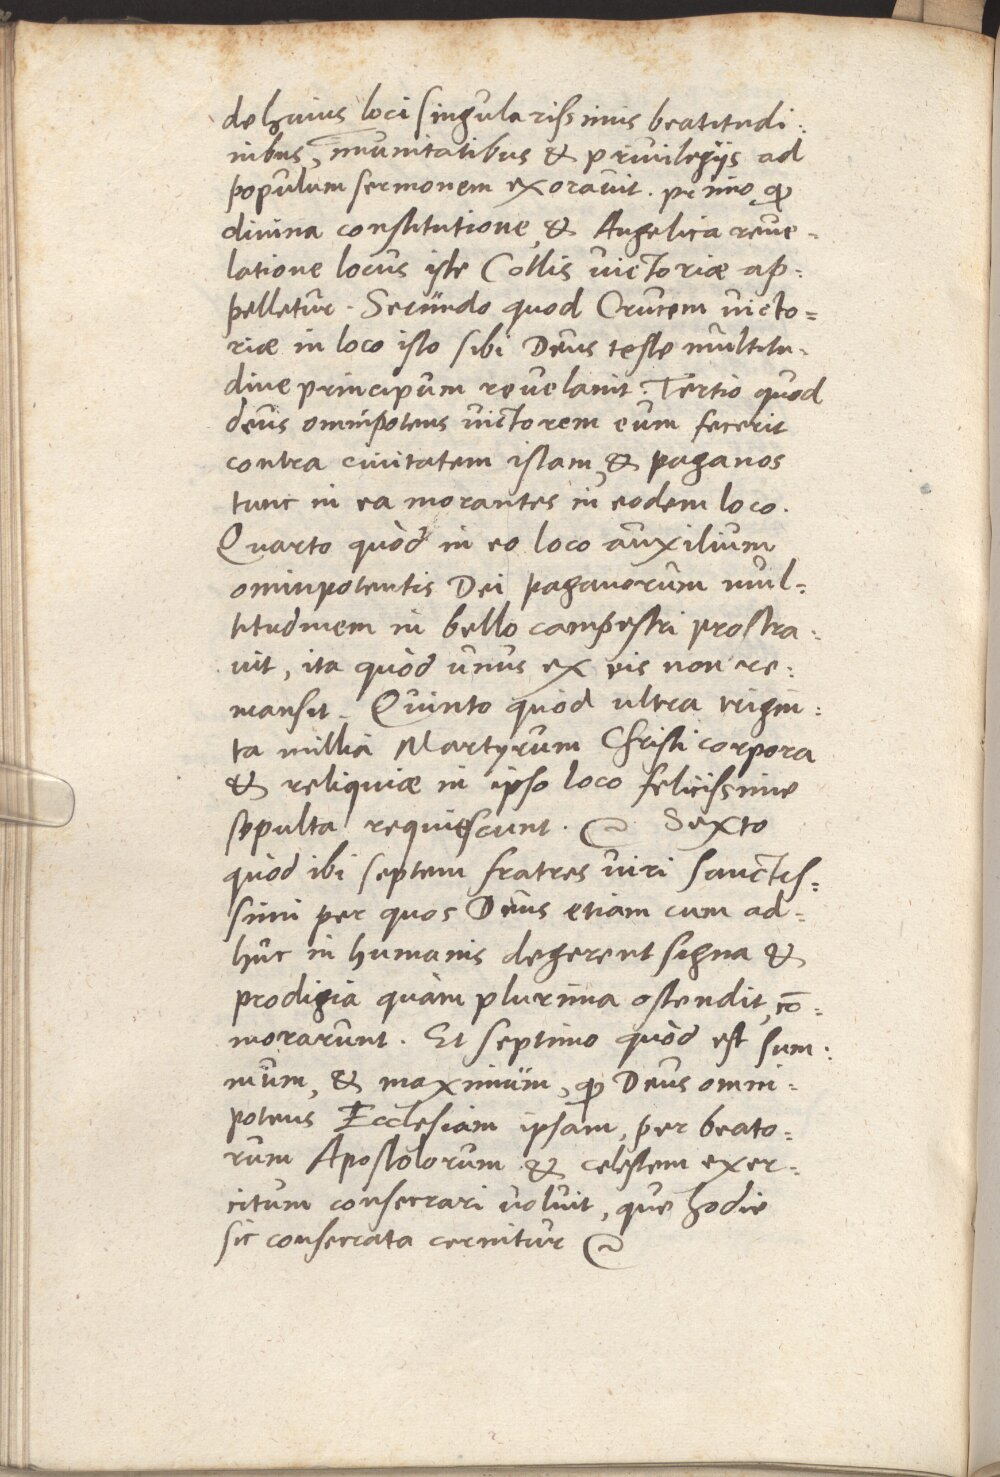 de huius loci singularissimis beatitudi:
nibus, munitatibus & privilegijs ad
populum sermonem exoravit. primo qȝ
divina constitutione, & Angelica reve-
latione locus iste Collis victoriæ ap:
pelletur. Secundo quod Crucem victo=
riæ in loco isto sibi Deus teste multitu-
dine principum revelavit. Tertio quod
deus omnipotens victorem eum fecerit
contra civitatem istam, & paganos
tunc in ea morantes in eodem loco.
Quarto quòd in eo loco auxilium
omnipotentis Dei paganorum mul-
titudinem in bello campestri prostra-
vit, ita quòd unus ex eis non re:
mansit. Quinto quòd ultra trigin:
ta millia Martyrum Christi corpora
& reliquiæ in ipso loco felicissime
sepulta requiescunt. Sexto
quòd ibi septem fratres viri sanctis=
simi per quos Deus etiam cum ad=
huc in humanis degerent signa &
prodigia quàm plurima ostendit, cō=
morarunt. Et septimo quòd est sum:
mum, & maximum, qȝ Deus omni-
potens Ecclesiam ipsam, per beato=
rum Apostolorum & celestem exer-
citum consecrari voluit, que hodie
sic consecrata cernitur